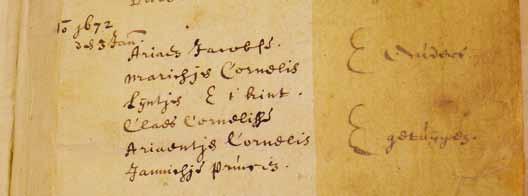 Ao 1672
des 3 Jan.
Ariaen Jacobsse.
Marichje Cornelis
Lijntje E t kint.
Claes Cornelisse
Ariaentje Cornelis
Jannichje Princis.
E Ouders
E getuijgen.